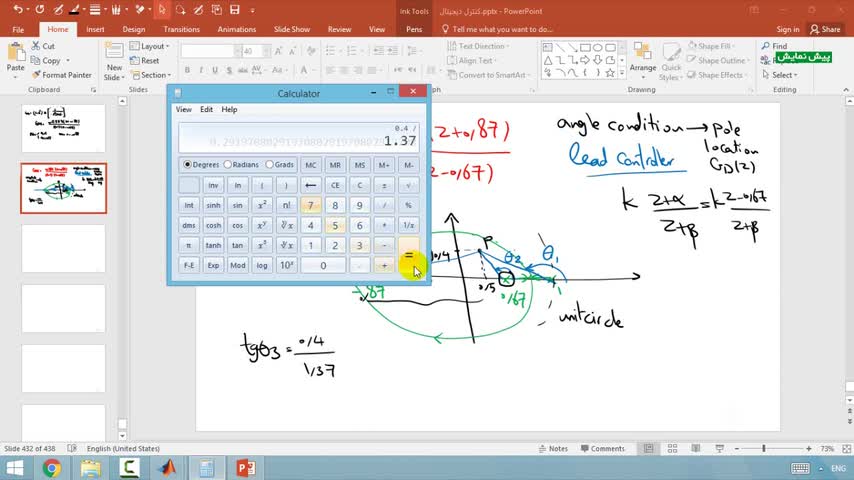 Ink Tools
کنترل دیجیتال.pptx - PowerPoint
File Home Insert Design Transitions Animations
View Pens Tell me what you want to do... Sign in Share
پیش نمایش
Paste Cut Copy Format Painter
New Slide Layout Reset Section
Text Direction Align Text Convert to SmartArt
Arrange Quick Styles Shape Fill Shape Outline Shape Effects
Find Select
Calculator
View Edit Help
0.4 /
1.37
Degrees Radians Grads MC MR MS M+ M-
Inv ln ( ) ← CE C ± √
Int sinh sin x² n! 7 8 9 / %
dms cosh cos xʸ ʸ√x 4 5 6 * 1/x
π tanh tan x³ ³√x 1 2 3 - =
F-E Exp Mod log 10ˣ 0 . +
(z+0,87)
z-0,67)
angle condition → pole
location
GD(z)
lead controller
k z+α / z+β = k z-0,67 / z+β
P
0,4
θ2 θ1
0,5
0,67
1
-,87
unit circle
tgθ3 = 0,4 / 1,37
Slide 432 of 438 English (United States) Notes Comments 73%
ENG